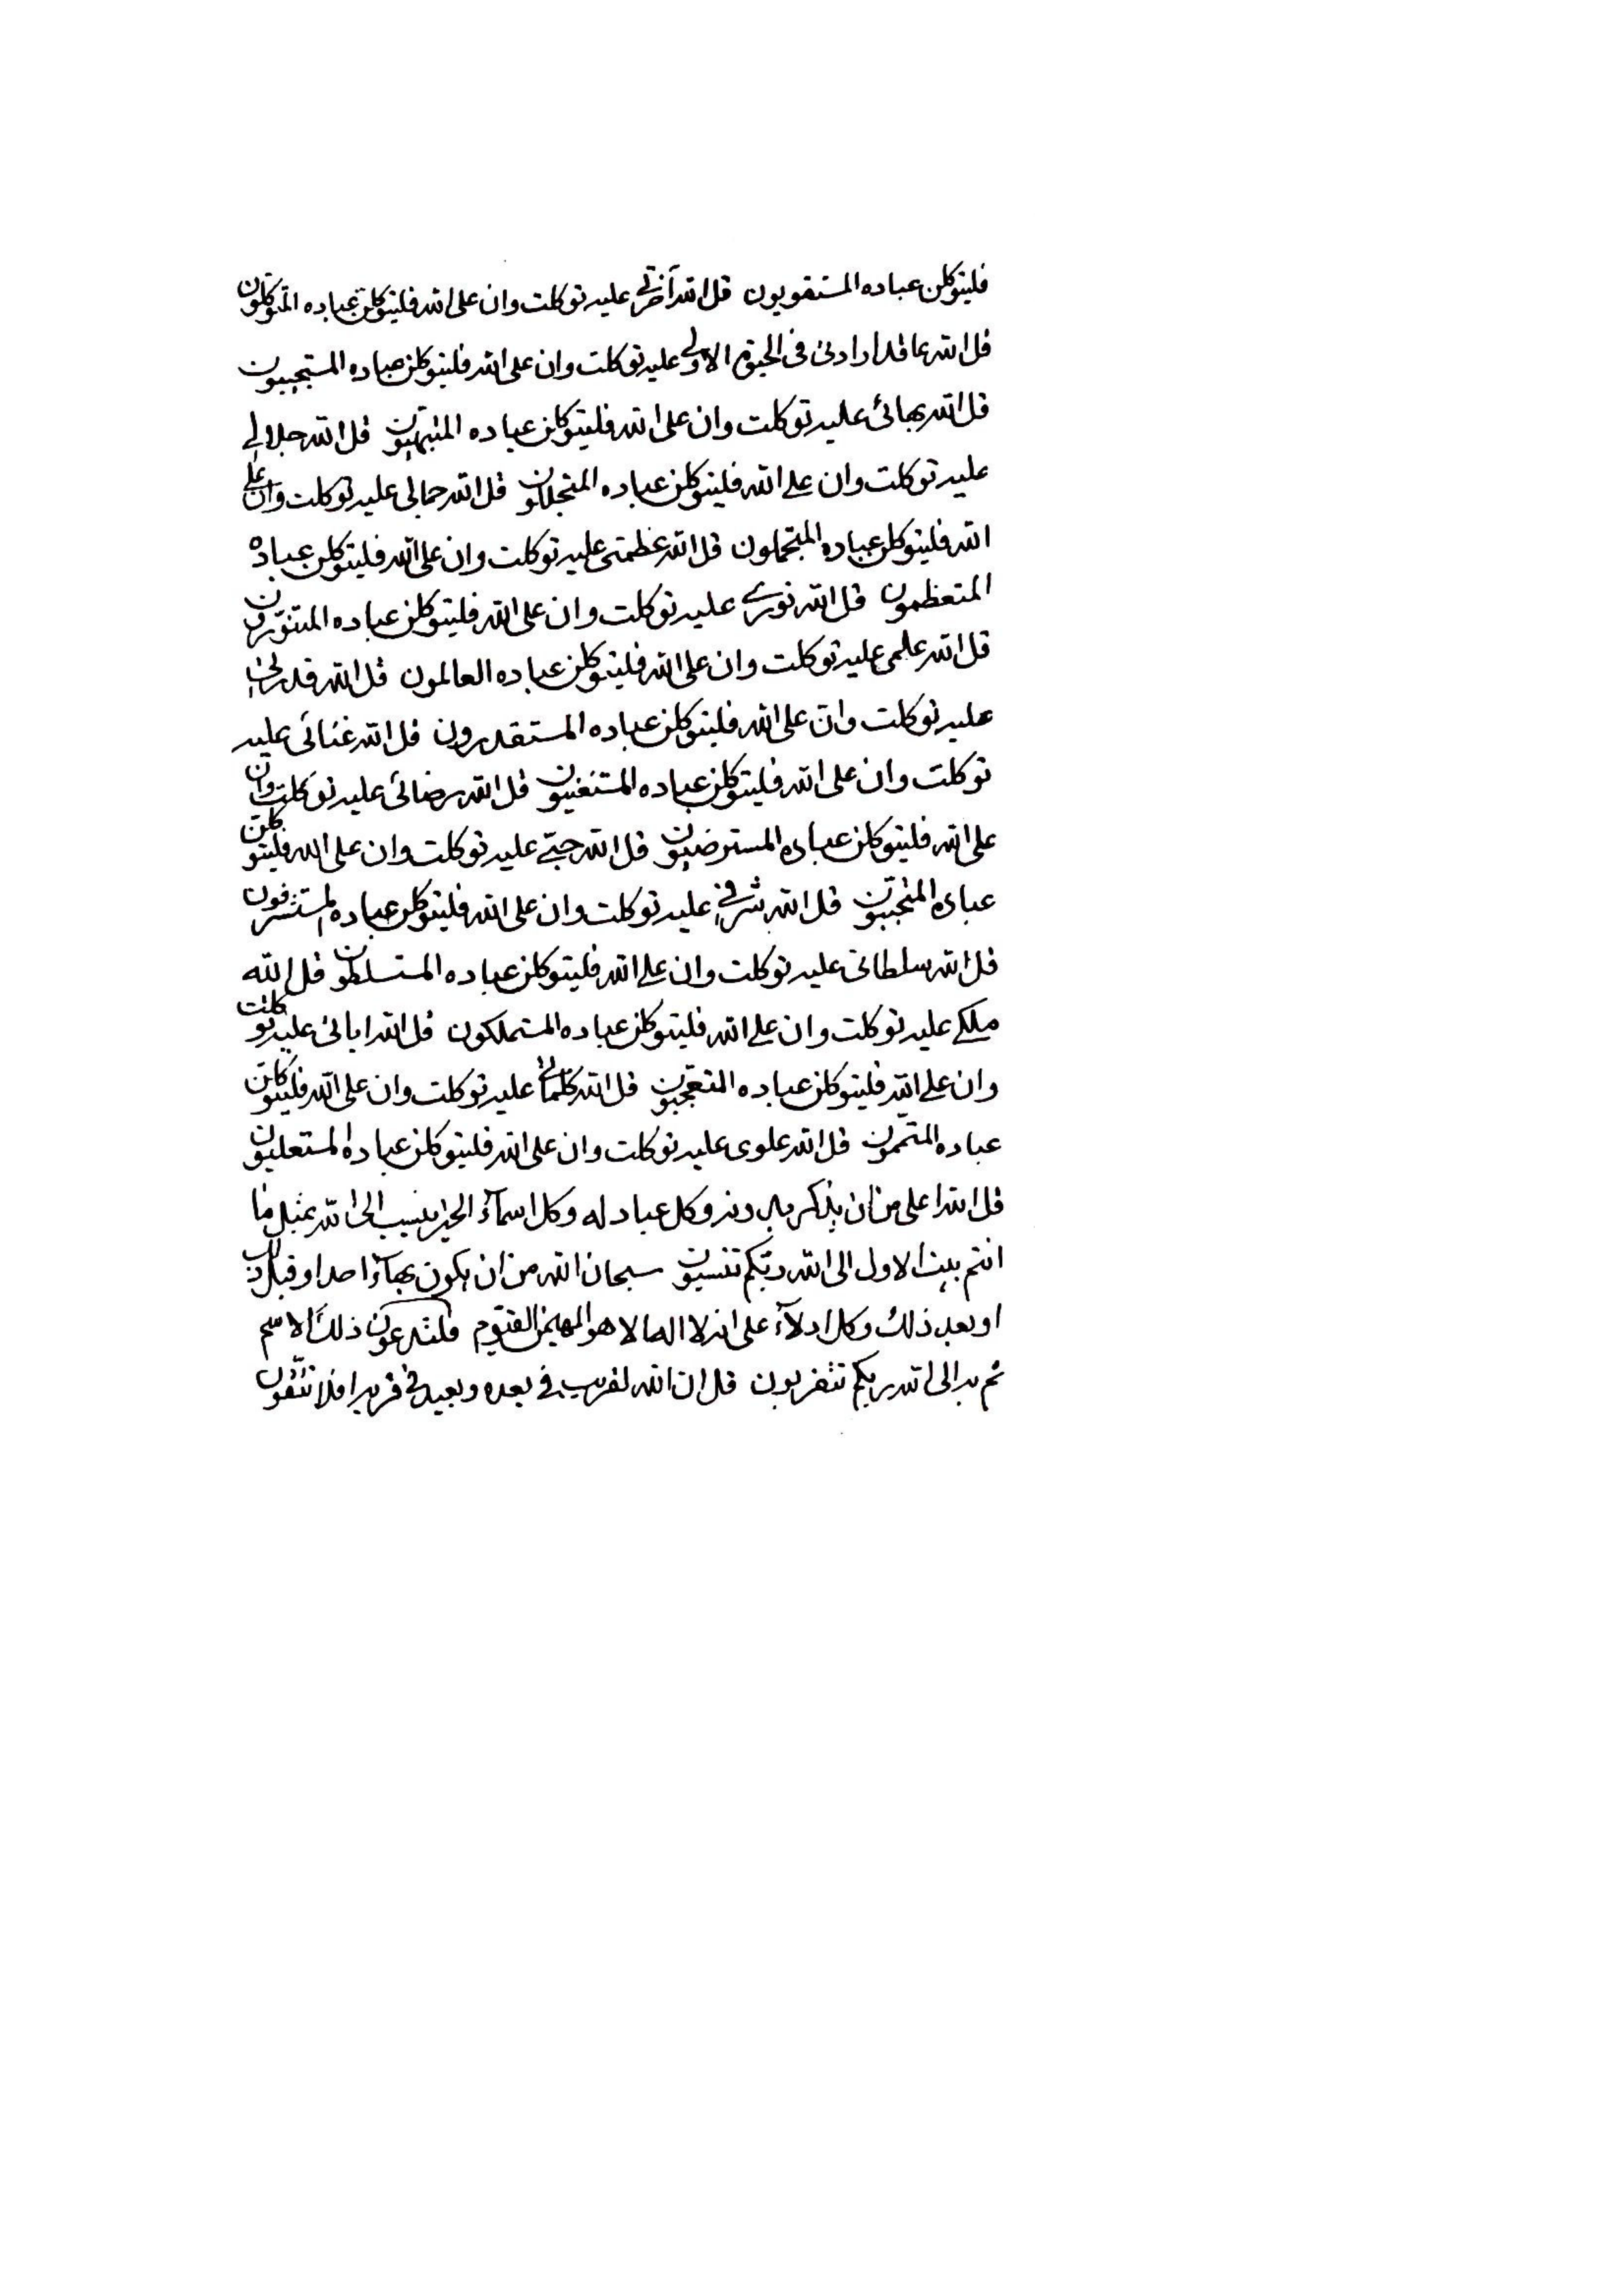 فليتوكلن عباده المستقويون قل الله آخرتي عليه توكلت وان على الله فليتوكلن عباده المتوكلون
قل الله عما قد ارادني في الحيوة الاولي عليه توكلت وان على الله فليتوكلن عباده المستجيبون
قل الله بهائي عليه توكلت وان على الله فليتوكلن عباده المتبهيون قل الله جلالي
عليه توكلت وان علي الله فليتوكلن عباده المتجللون قل الله جمالي عليه توكلت وان علي
الله فليتوكلن عباده المتجملون قل الله عظمتي عليه توكلت وان على الله فليتوكلن عباده
المتعظمون قل الله نوري عليه توكلت وان على الله فليتوكلن عباده المتنورون
قل الله علمي عليه توكلت وان على الله فليتوكلن عباده العالمون قل الله قدرتي
عليه توكلت وان على الله فليتوكلن عباده المستقدرون قل الله غنائي عليه
توكلت وان على الله فليتوكلن عباده المستغنيون قل الله رضائي عليه توكلت وان
على الله فليتوكلن عباده المسترضيون قل الله حبي عليه توكلت وان على الله فليتوكلن
عباده المتحببون قل الله شرفي عليه توكلت وان على الله فليتوكلن عباده المستشرفون
قل الله سلطاني عليه توكلت وان علي الله فليتوكلن عباده المتسلطون قل الله
ملكي عليه توكلت وان علي الله فليتوكلن عباده المستملكون قل الله اياتي عليه توكلت
وان علي الله فليتوكلن عباده المتعجبون قل الله كلماتي عليه توكلت وان على الله فليتوكلن
عباده المتممون قل الله علوي عليه توكلت وان على الله فليتوكلن عباده المستعليون
قل الله اعلى من ان يذكر به دونه وكل عباد له وكل اسماء الخير ينسب الى الله بمثل ما
انتم بيت الاول الى الله ربكم تنسبون سبحان الله من ان يكون بهاء احدا او قبل ذلك
او بعد ذلك وكل ادلاء على انه لا اله الا هو المهيمن القيوم فلتدعون ذلك الاسم
ثم به الى الله ربكم تتقربون قل ان الله لقريب في بعده وبعيد في قربه افلا تتقون